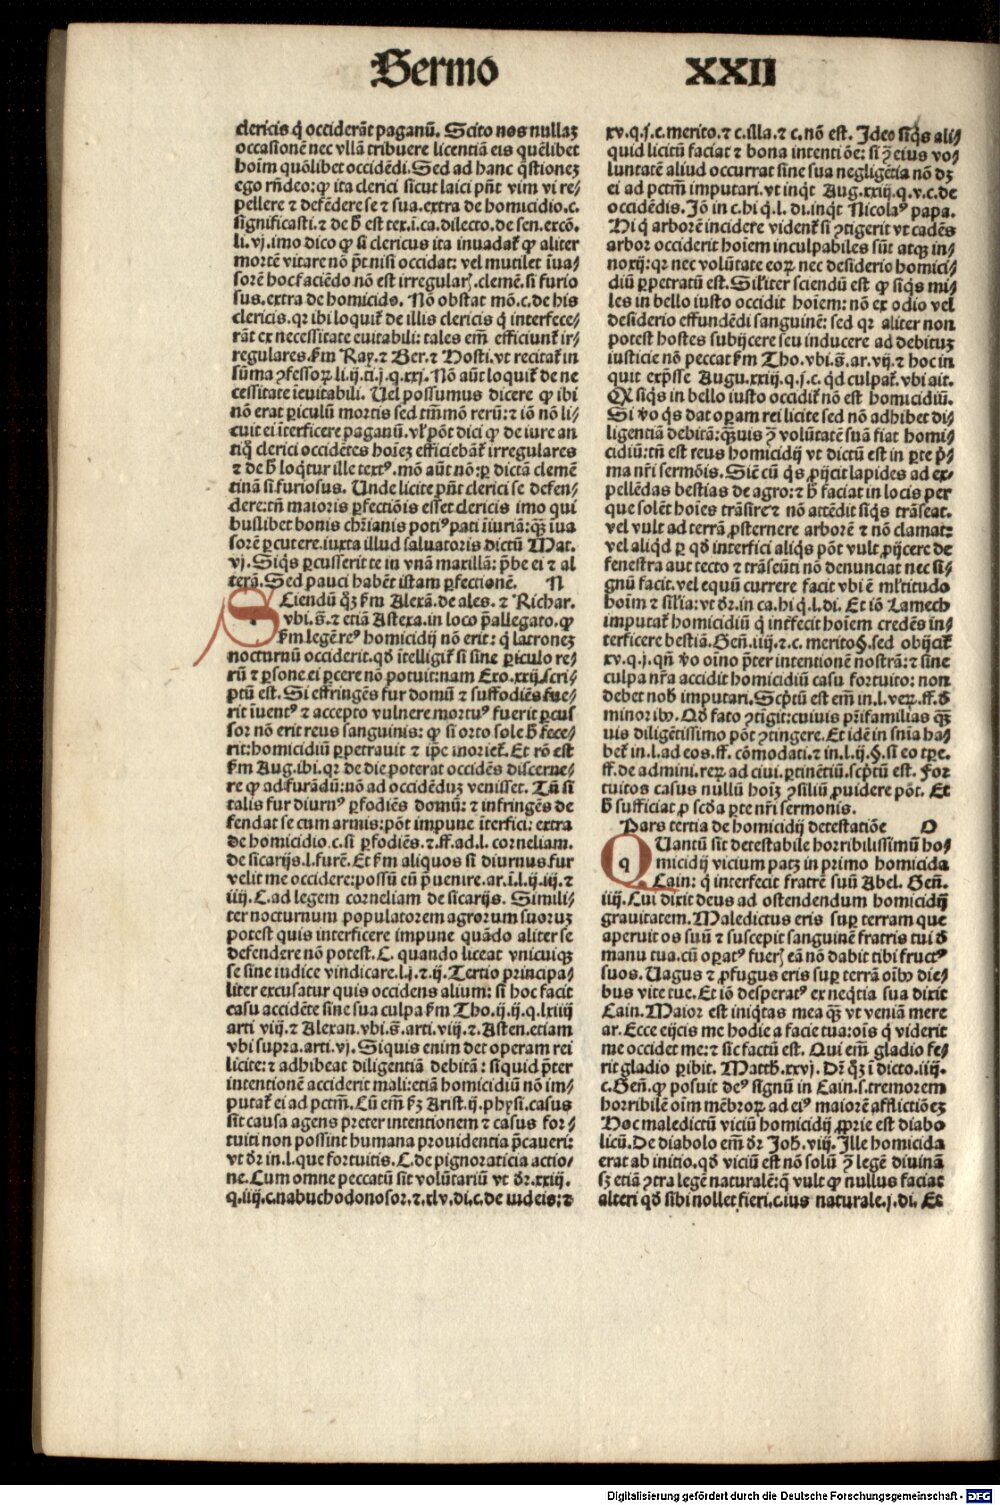 Sermo XXII
clericis q̇ occiderāt paganū. Scito nos nullaʒ
occasionē nec vllā tribuere licentiā eis quēlibet
hoīm quōlibet occidēdi. Sed ad hanc q̄stioneʒ
ego rn̄deo: ꝙ ita clerici sicut laici pn̄t vim vi re⸗
pellere ⁊ defēdere se ⁊ sua. extra de homicidio. c.
significasti. ⁊ de h̄ est tex. i. ca. dilecto. de sen. excō.
li. vj. imo dico ꝙ si clericus ita inuadat̄ ꝙ aliter
mortē vitare nō pt̄ nisi occidat: vel mutilet īua⸗
sorē hoc faciēdo nō est irregularꝭ. clemē. si furio
sus. extra de homicido. Nō obstat mō. c. de his
clericis. qr ibi loquit̄ de illis clericis q̇ interfece⸗
rāt ex necessitate euitabili: tales em̄ efficiunt̄ ir⸗
regulares. ẜm Ray. ⁊ Ber. ⁊ Hosti. vt recitat̄ in
sūma ꝯfessoꝝ li. ij. ti. j. q. xxj. Nō aūt loquit̄ de ne
cessitate ieuitabili. Uel possumus dicere ꝙ ibi
nō erat ꝑiculū mortis sed tm̄mō rerū: ⁊ iō nō li⸗
cuit ei īterficere paganū. vl̄ pōt dici ꝙ de iure an
tiq̇ clerici occidētes hoīeʒ efficiebāt̄ irregulares
⁊ de h̄ loq̇tur ille textꝰ. mō aūt nō: ꝑ dictā clemē
tinā si furiosus. Unde licite pn̄t clerici se defen⸗
dere: tn̄ maioris ꝑfectiōis esset clericis imo qui
buslibet bonis chr̄ianis potiꝰ pati iiuriā: q̄ꝫ īua
sorē ꝑcutere. iuxta illud saluatoris dictū Mat.
vj. Siq̇s ꝑcusserit te in vnā maxillā: p̄be ei ⁊ al
terā. Sed pauci habēt istam ꝑfectionē. N
SCiendū q̇ʒ ẜm Alexā. de ales. ⁊ Richar.
vbi. s̄. ⁊ etiā Astexa. in loco p̄allegato. ꝙ
ẜm legē reꝰ homicidij nō erit: q̇ latroneʒ
nocturnū occiderit. qd̄ ītelligit̄ si sine ꝑiculo re⸗
rū ⁊ ꝑsone ei ꝑcere nō potuit: nam Exo. xxij. scri⸗
ptū est. Si effringēs fur domū ⁊ suffodiēs fue⸗
rit īuentꝰ ⁊ accepto vulnere mortuꝰ fuerit ꝑcus
sor nō erit reus sanguinis: ꝙ si orto sole h̄ fece⸗
rit: homicidiū ꝑpetrauit ⁊ ip̄e moriet̄. Et rō est
ẜm Aug. ibi. qr de die poterat occidēs discerne⸗
re ꝙ ad furādū: nō ad occidēduʒ venisset. Tn̄ si
talis fur diurnꝰ ꝑfodiēs domū: ⁊ infringēs de
fendat se cum armis: pōt impune īterfici: extra
de homicidio. c. si ꝑfodiēs. ⁊. ff. ad. l. corneliam.
de sicarijs. l. furē. Et ẜm aliquos si diurnus fur
velit me occidere: possū eū p̄uenire. ar. ī. l. ij. iij. ⁊
iiij. C. ad legem corneliam de sicarijs. Simili⸗
ter nocturnum populatorem agrorum suoruʒ
potest quis interficere impune quādo aliter se
defendere nō potest. C. quando liceat vnicuiqꝫ
se sine iudice vindicare. l. j. ⁊. ij. Tertio principa⸗
liter excusatur quis occidens alium: si hoc facit
casu accidēte sine sua culpa ẜm Tho. ij. ij. q. lxiiij
arti viij. ⁊ Alexan. vbi. s̄. arti. viij. ⁊ Asten. etiam
vbi supra. arti. vj. Siquis enim det operam rei
licite: ⁊ adhibeat diligentiā debitā: siquid p̄ter
intentionē acciderit mali: etiā homicidiū nō im⸗
putat̄ ei ad pctm̄. Cū em̄ ẜʒ Arist. ij. physi. casus
sit causa agens preter intentionem ⁊ casus for⸗
tuiti non possint humana prouidentia p̄caueri:
vt dr̄ in. l. que fortuitis. C. de pignoraticia actio⸗
ne. Cum omne peccatū sit volūtariū vt dr̄. xxiij.
q. iiij. c. nabuchodonosor. ⁊. xlv. di. c. de iudeis: ⁊
xv. q. j. c. merito. ⁊ c. illa. ⁊ c. nō est. Ideo siq̇s ali⸗
quid licitū faciat ⁊ bona intentiōe: si ꝯ̄ eius vo⸗
luntatē aliud occurrat sine sua negligētia nō dʒ
ei ad pctm̄ imputari. vt inq̇t Aug. xxiij. q. v. c. de
occidēdis. Iō in c. hi q̇. l. di. inq̇t Nicolaꝰ papa.
Hi q̇ arborē incidere vident̄ si ꝯtigerit vt cadēs
arbor occiderit hoīem inculpabiles sūt atqꝫ in⸗
noxij: qr nec volūtate eoꝝ nec desiderio homici⸗
diū ꝑpetratū est. Silīter sciendū est ꝙ siq̇s mi⸗
les in bello iusto occidit hoīem: nō ex odio vel
desiderio effundēdi sanguinē: sed qr aliter non
potest hostes subijcere seu inducere ad debituʒ
iusticie nō peccat ẜm Tho. vbi. s̄. ar. vij. ⁊ hoc in
quit exp̄sse Augu. xxiij. q. j. c. q̇d culpat̄. vbi ait.
Qr siqs in bello iusto occidit̄ nō est homicidiū.
Si v̄o q̇s dat oꝑam rei licite sed nō adhibet di⸗
ligentiā debitā: q̄ꝫuis ꝯ̄ volūtatē suā fiat homi⸗
cidiū: tn̄ est reus homicidij vt dictū est in ꝑte ṗ⸗
ma nr̄i sermōis. Sic̄ cū q̇s ꝓijcit lapides ad ex⸗
pellēdas bestias de agro: ⁊ h̄ faciat in locis per
que solēt hoīes trāsire ⁊ nō attēdit siq̇s trāseat.
vel vult ad terrā ꝓsternere arborē ⁊ nō clamat:
vel aliqd ꝑ qd̄ interfici aliq̇s pōt vult ꝓijcere de
fenestra aut tecto ⁊ trāseūti nō denunciat nec si⸗
gnū facit. vel equū currere facit vbi ē ml̄titudo
hoīm ⁊ silīa: vt dr̄. in ca. hi q̇. l. di. Et iō Lamech
imputat̄ homicidiū q̇ int̄fecit hoīem credēs in⸗
terficere bestiā. Gen̄. iiij. ⁊ c. merito §. sed obijcit̄
xv. q. j. qn̄ v̄o oīno p̄ter intentionē nostrā: ⁊ sine
culpa nr̄a accidit homicidiū casu fortuito: non
debet nob̄ imputari. Scp̄tū est em̄ in. l. veꝝ. ff. d̄
minoribꝫ. Qd̄ fato ꝯtigit: cuiuis pr̄ifamilias q̄ꝫ
uis diligētissimo pōt ꝯtingere. Et idē in sn̄ia ha⸗
bet̄ in. l. ad eos. ff. cōmodati. ⁊ in. l. ij. §. si eo tꝑe.
ff. de admini. reꝝ ad ciui. ꝑtinētiū. scp̄tū est. For
tuitos casus nullū hoīʒ ꝯsiliū ꝓuidere pōt. Et
h̄ sufficiat ꝓ scd̄a ꝑte nr̄i sermonis.
Pars tertia de homicidij detestatiōe O
QUantū sit detestabile horribilissimū ho⸗
micidij vicium patʒ in primo homicida
Cain: q̇ interfecit fratrē suū Abel. Gen̄.
iiij. Cui dixit deus ad ostendendum homicidij
grauitatem. Maledictus eris suꝑ terram que
aperuit os suū ⁊ suscepit sanguinē fratris tui d̄
manu tua. cū oꝑatꝰ fuerꝭ eā nō dabit tibi fructꝰ
suos. Uagus ⁊ ꝓfugus eris suꝑ terrā oībꝫ die⸗
bus vite tue. Et iō desperatꝰ ex neq̇tia sua dixit
Cain. Maior est iniq̇tas mea q̄ꝫ vt veniā mere
ar. Ecce eijcis me hodie a facie tua: oīs q̇ viderit
me occidet me: ⁊ sic factū est. Qui em̄ gladio fe⸗
rit gladio ꝑibit. Matth. xxvj. Dr̄ q̇ʒ ī dicto. iiij.
c. Gen̄. ꝙ posuit deꝰ signū in Cain. s. tremorem
horribilē oīm mēbroꝝ ad eiꝰ maiorē afflictiōeʒ
Hoc maledictū viciū homicidij ꝓprie est diabo
licū. De diabolo em̄ dr̄ Joh̄. viij. Ille homicida
erat ab initio. qd̄ viciū est nō solū ꝯ̄ legē diuinā
sʒ etiā ꝯtra legē naturalē: q̄ vult ꝙ nullus faciat
alteri qd̄ sibi nollet fieri. c. ius naturale. j. di. Et
Digitalisierung gefördert durch die Deutsche Forschungsgemeinschaft - DFG